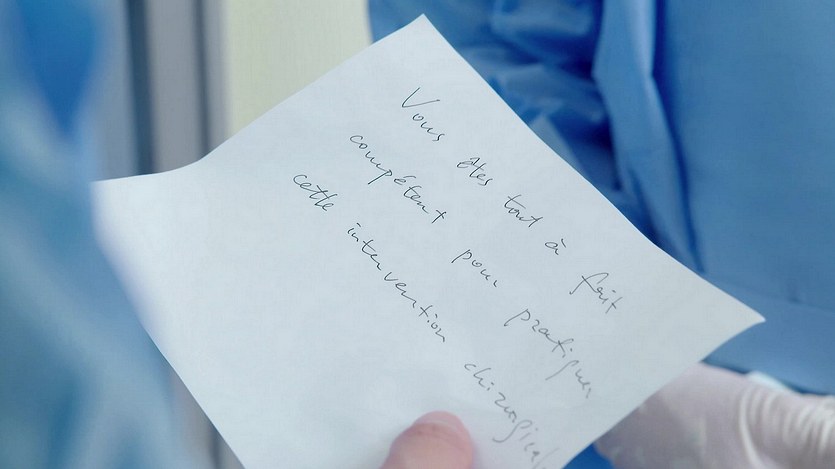 Vous êtes tout à fait
compétent pour pratiquer
cette intervention chirurgical